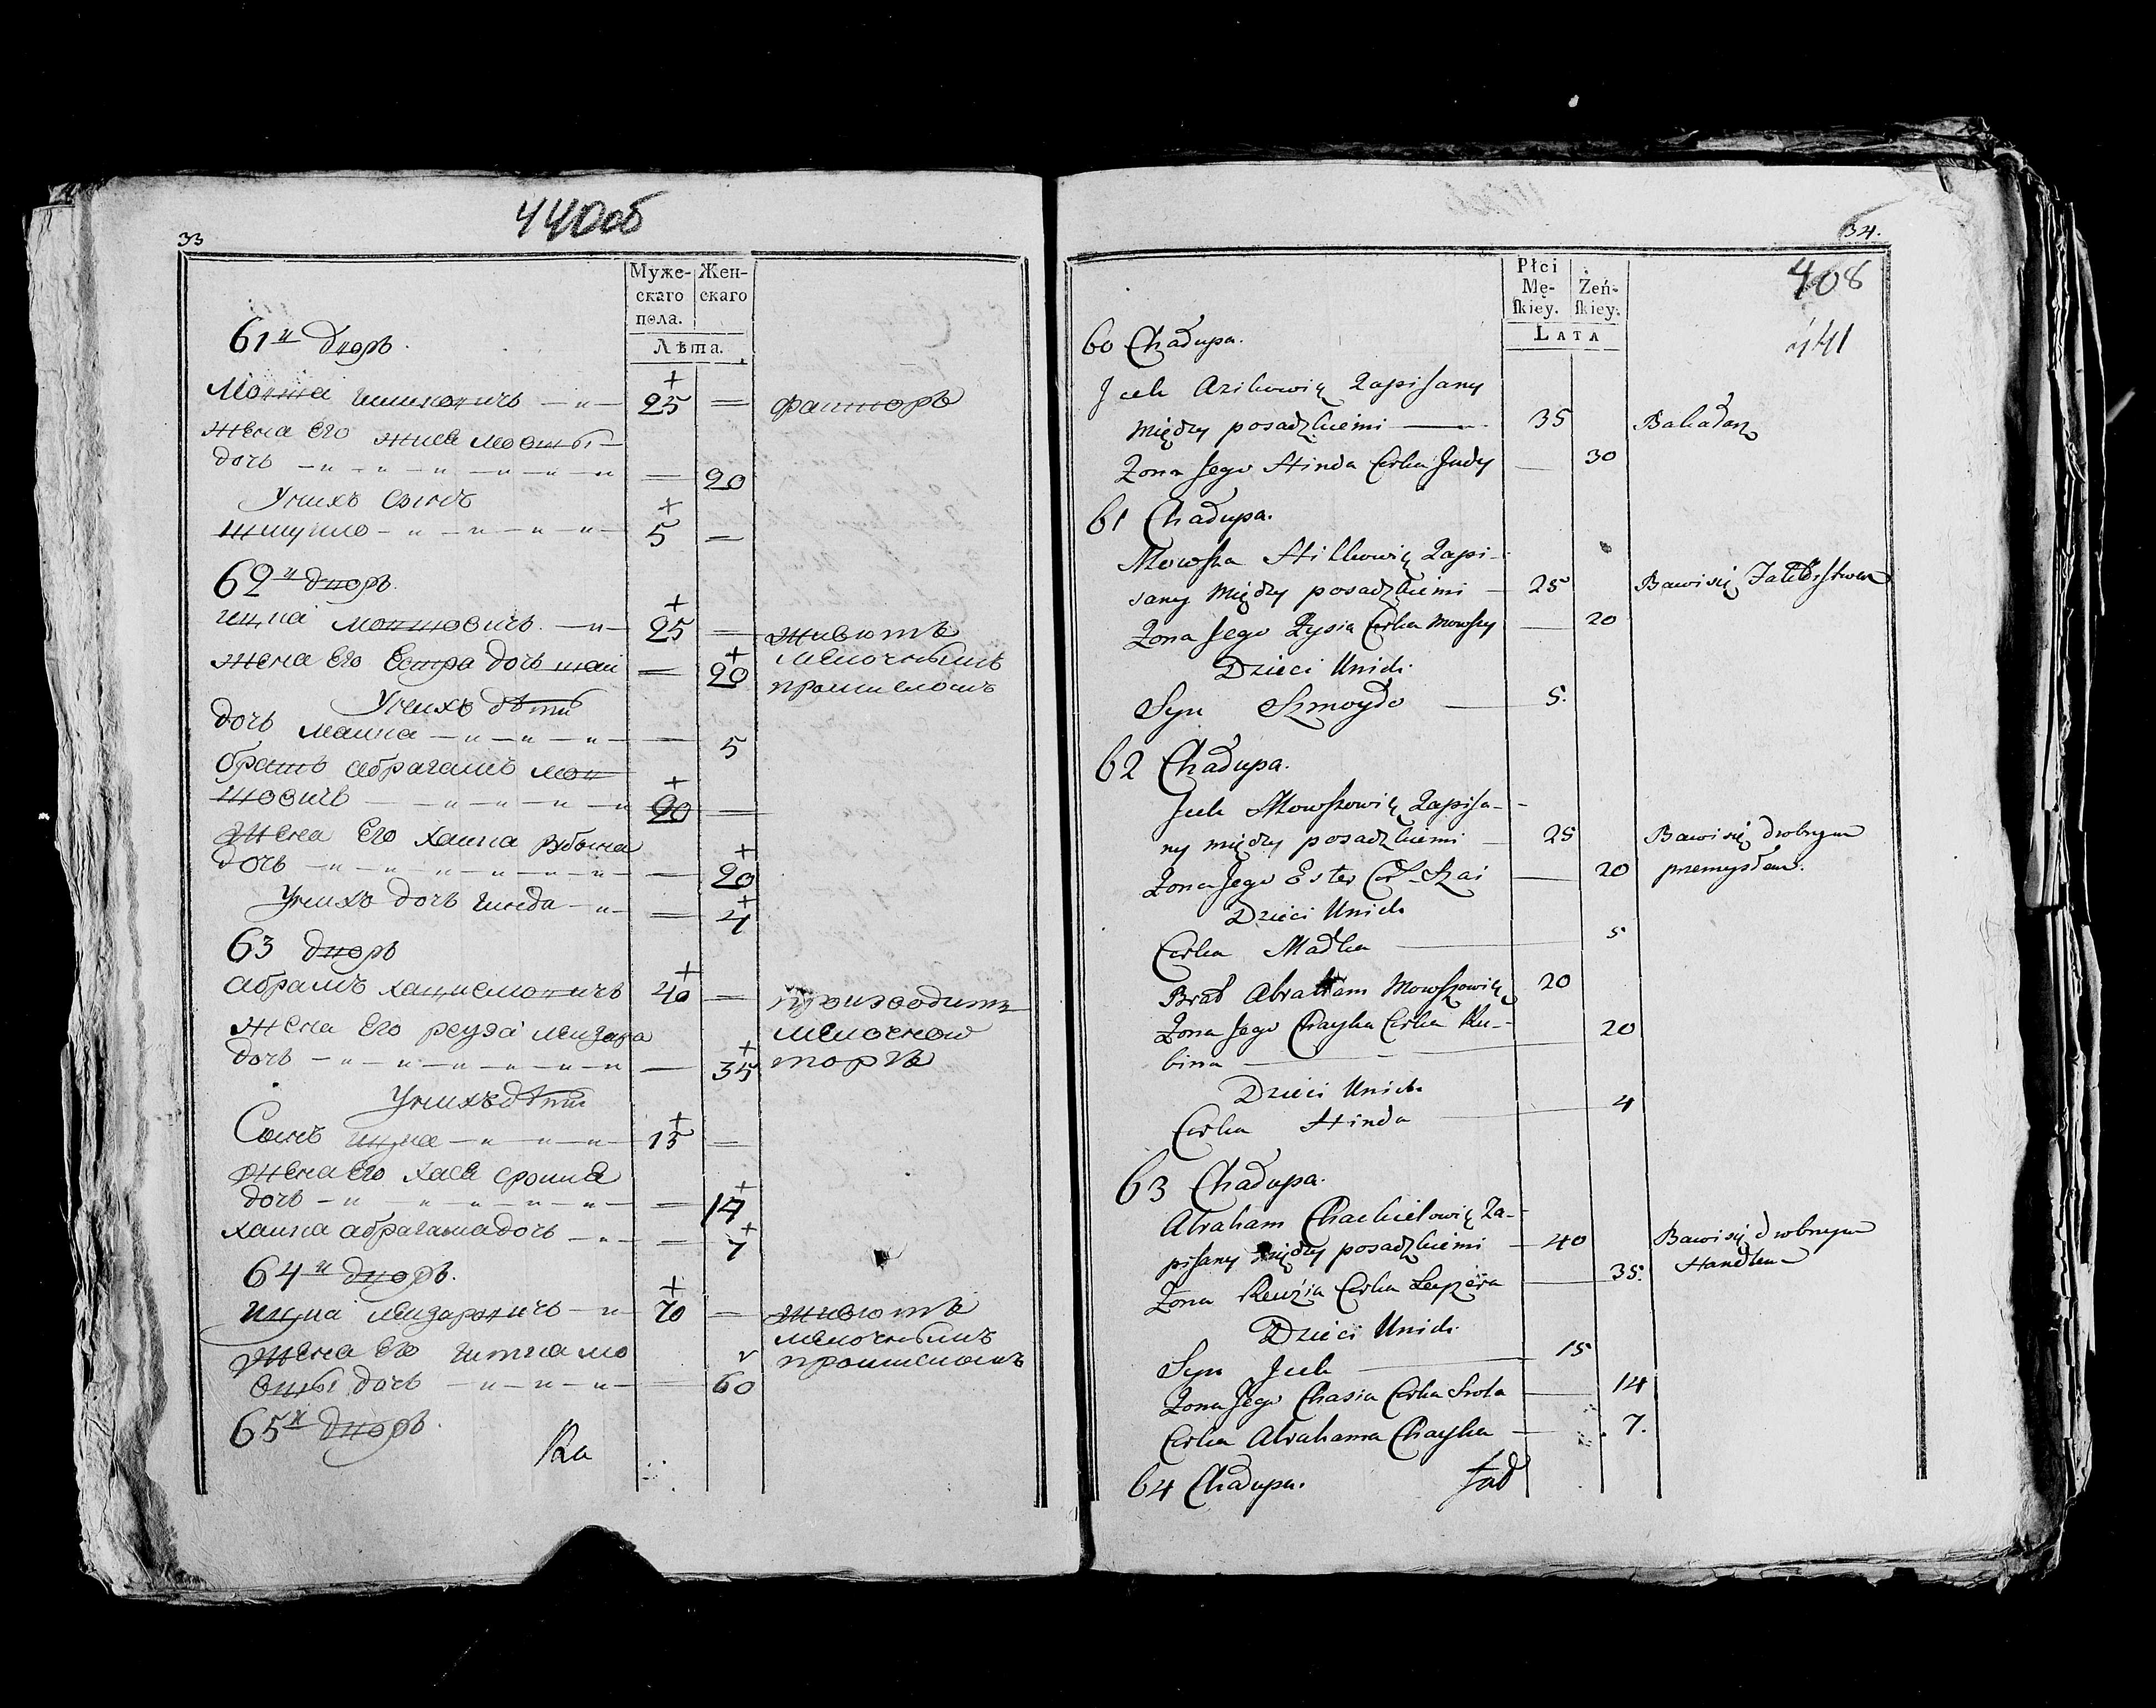 440об
33
Муже-
скаго
пола.
Жен-
скаго
Лѣта.
61й дворъ.
Мовша гилковичъ — 25 = факторъ
жена его жися мовшы
дочь — = 20
У нихъ сынъ
шмуйло — 5 =
62й дворъ.
ицка мовшовичъ — 25 = живетъ
жена его Естра дочь шаи = 20 мелочнымъ
промысломъ
У нихъ дѣти
дочь малка — 5
братъ абрагамъ мов
шовичъ — 20 =
жена его хаика рубына
дочь — 20
У нихъ дочь гинда — = 4
63 дворъ
абрамъ хацкелевичъ 40 = производитъ
жена его реузя лейзера мелочной
дочь — 35 торгъ
У нихъ дѣти
Сынъ ицка — 15 =
жена его хася сроила
дочь — = 14
хаика абрагама дочь — = 7
64й дворъ.
ицка лейзаровичъ — 70 = живетъ
мелочнымъ
жена его гитка мо промысломъ
вшы дочь — = 60
65й дворъ.
34.
408
441
Płci
Mę-
skiey.
Żeń-
skiey.
LATA
60 Chałupa.
Jcek Azikowicz Zapisany
między posadzkiemi — 35 Bakałarz
Zona Jego Hinda Corka Judy — 30
61 Chałupa.
Mowsza Hilkowicz Zapi-
sany między posadzkiemi — 25 Bawi się Faktorstwem
Zona Jego Zysia Corka Mowszy — 20
Dzieci Unich.
Syn Szmoyło — 5.
62 Chałupa.
Jcek Mowszowicz Zapisa-
ny między posadzkiemi — 25 Bawi się drobnym
Zona Jego Ester Cor. Szai — 20 przemysłem.
Dzieci Unich
Corka Małka — 5
Brat Abraham Mowszowicz 20
Zona Jego Chayka Corka Ru- 20
bina —
Dzieci Unich
Corka Hinda — 4
63 Chałupa.
Abraham Chackielowicz Za-
pisany między posadzkiemi — 40 Bawi się drobnym
Zona Reuzia Corka Leyzera — 35. Handlem
Dzieci Unich.
Syn Jcek — 15
Zona Jego Chasia Corka Srola — 14
Corka Abrahama Chayka — 7.
64 Chałupa.